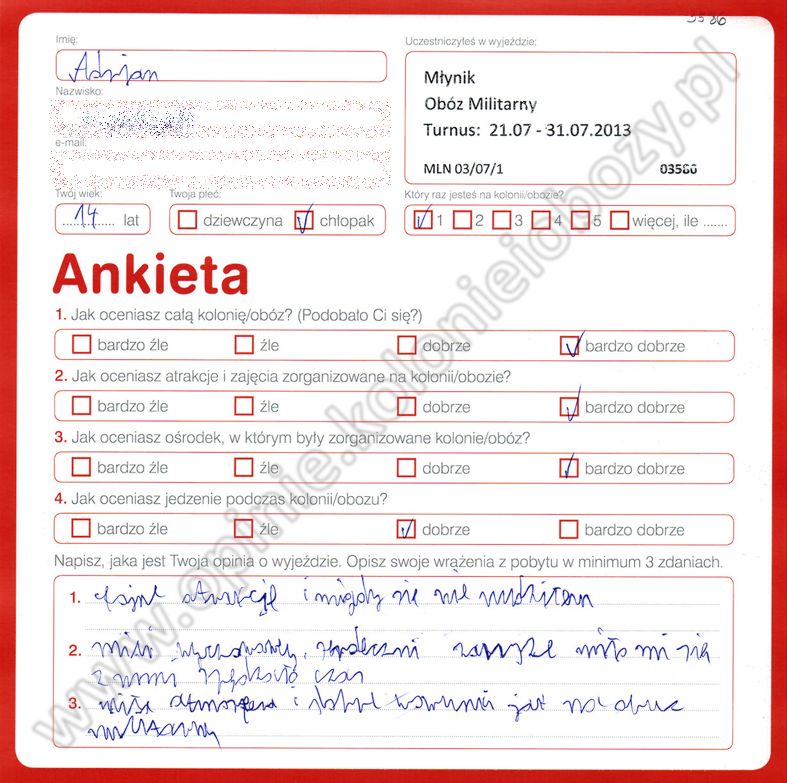 3586
Imię:
Adrian
Uczestniczyłeś w wyjeździe:
Młynik
Obóz Militarny
Turnus: 21.07 - 31.07.2013
MLN 03/07/1 03586
Nazwisko:
e-mail:
Twój wiek:
14 lat
Twoja płeć:
dziewczyna chłopak
Który raz jesteś na kolonii/obozie?
1 2 3 4 5 więcej, ile .......
Ankieta
1. Jak oceniasz całą kolonię/obóz? (Podobało Ci się?)
bardzo źle źle dobrze bardzo dobrze
2. Jak oceniasz atrakcje i zajęcia zorganizowane na kolonii/obozie?
bardzo źle źle dobrze bardzo dobrze
3. Jak oceniasz ośrodek, w którym były zorganizowane kolonie/obóz?
bardzo źle źle dobrze bardzo dobrze
4. Jak oceniasz jedzenie podczas kolonii/obozu?
bardzo źle źle dobrze bardzo dobrze
Napisz, jaka jest Twoja opinia o wyjeździe. Opisz swoje wrażenia z pobytu w minimum 3 zdaniach.
1. fajne atrakcje i nigdy się nie nudziłem
2. mili wychowawcy, serdeczni zawsze miło mi się
z nimi spędzało czas
3. miła atmosfera i dobre warunki jak na obuz
militarny
www.opinie.kolonieiobozy.pl